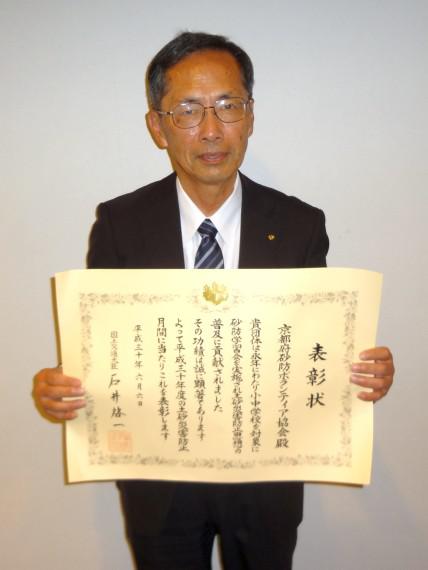 表彰状
京都府砂防ボランティア協会殿
貴団体は永年にわたり小中学校を対象に
砂防学習会を実施され土砂災害防止意識の
普及に貢献されました
その功績は誠に顕著であります
よって平成三十年度の土砂災害防止
月間に当たりこれを表彰します
平成三十年 六月六日
国土交通大臣 石井啓一